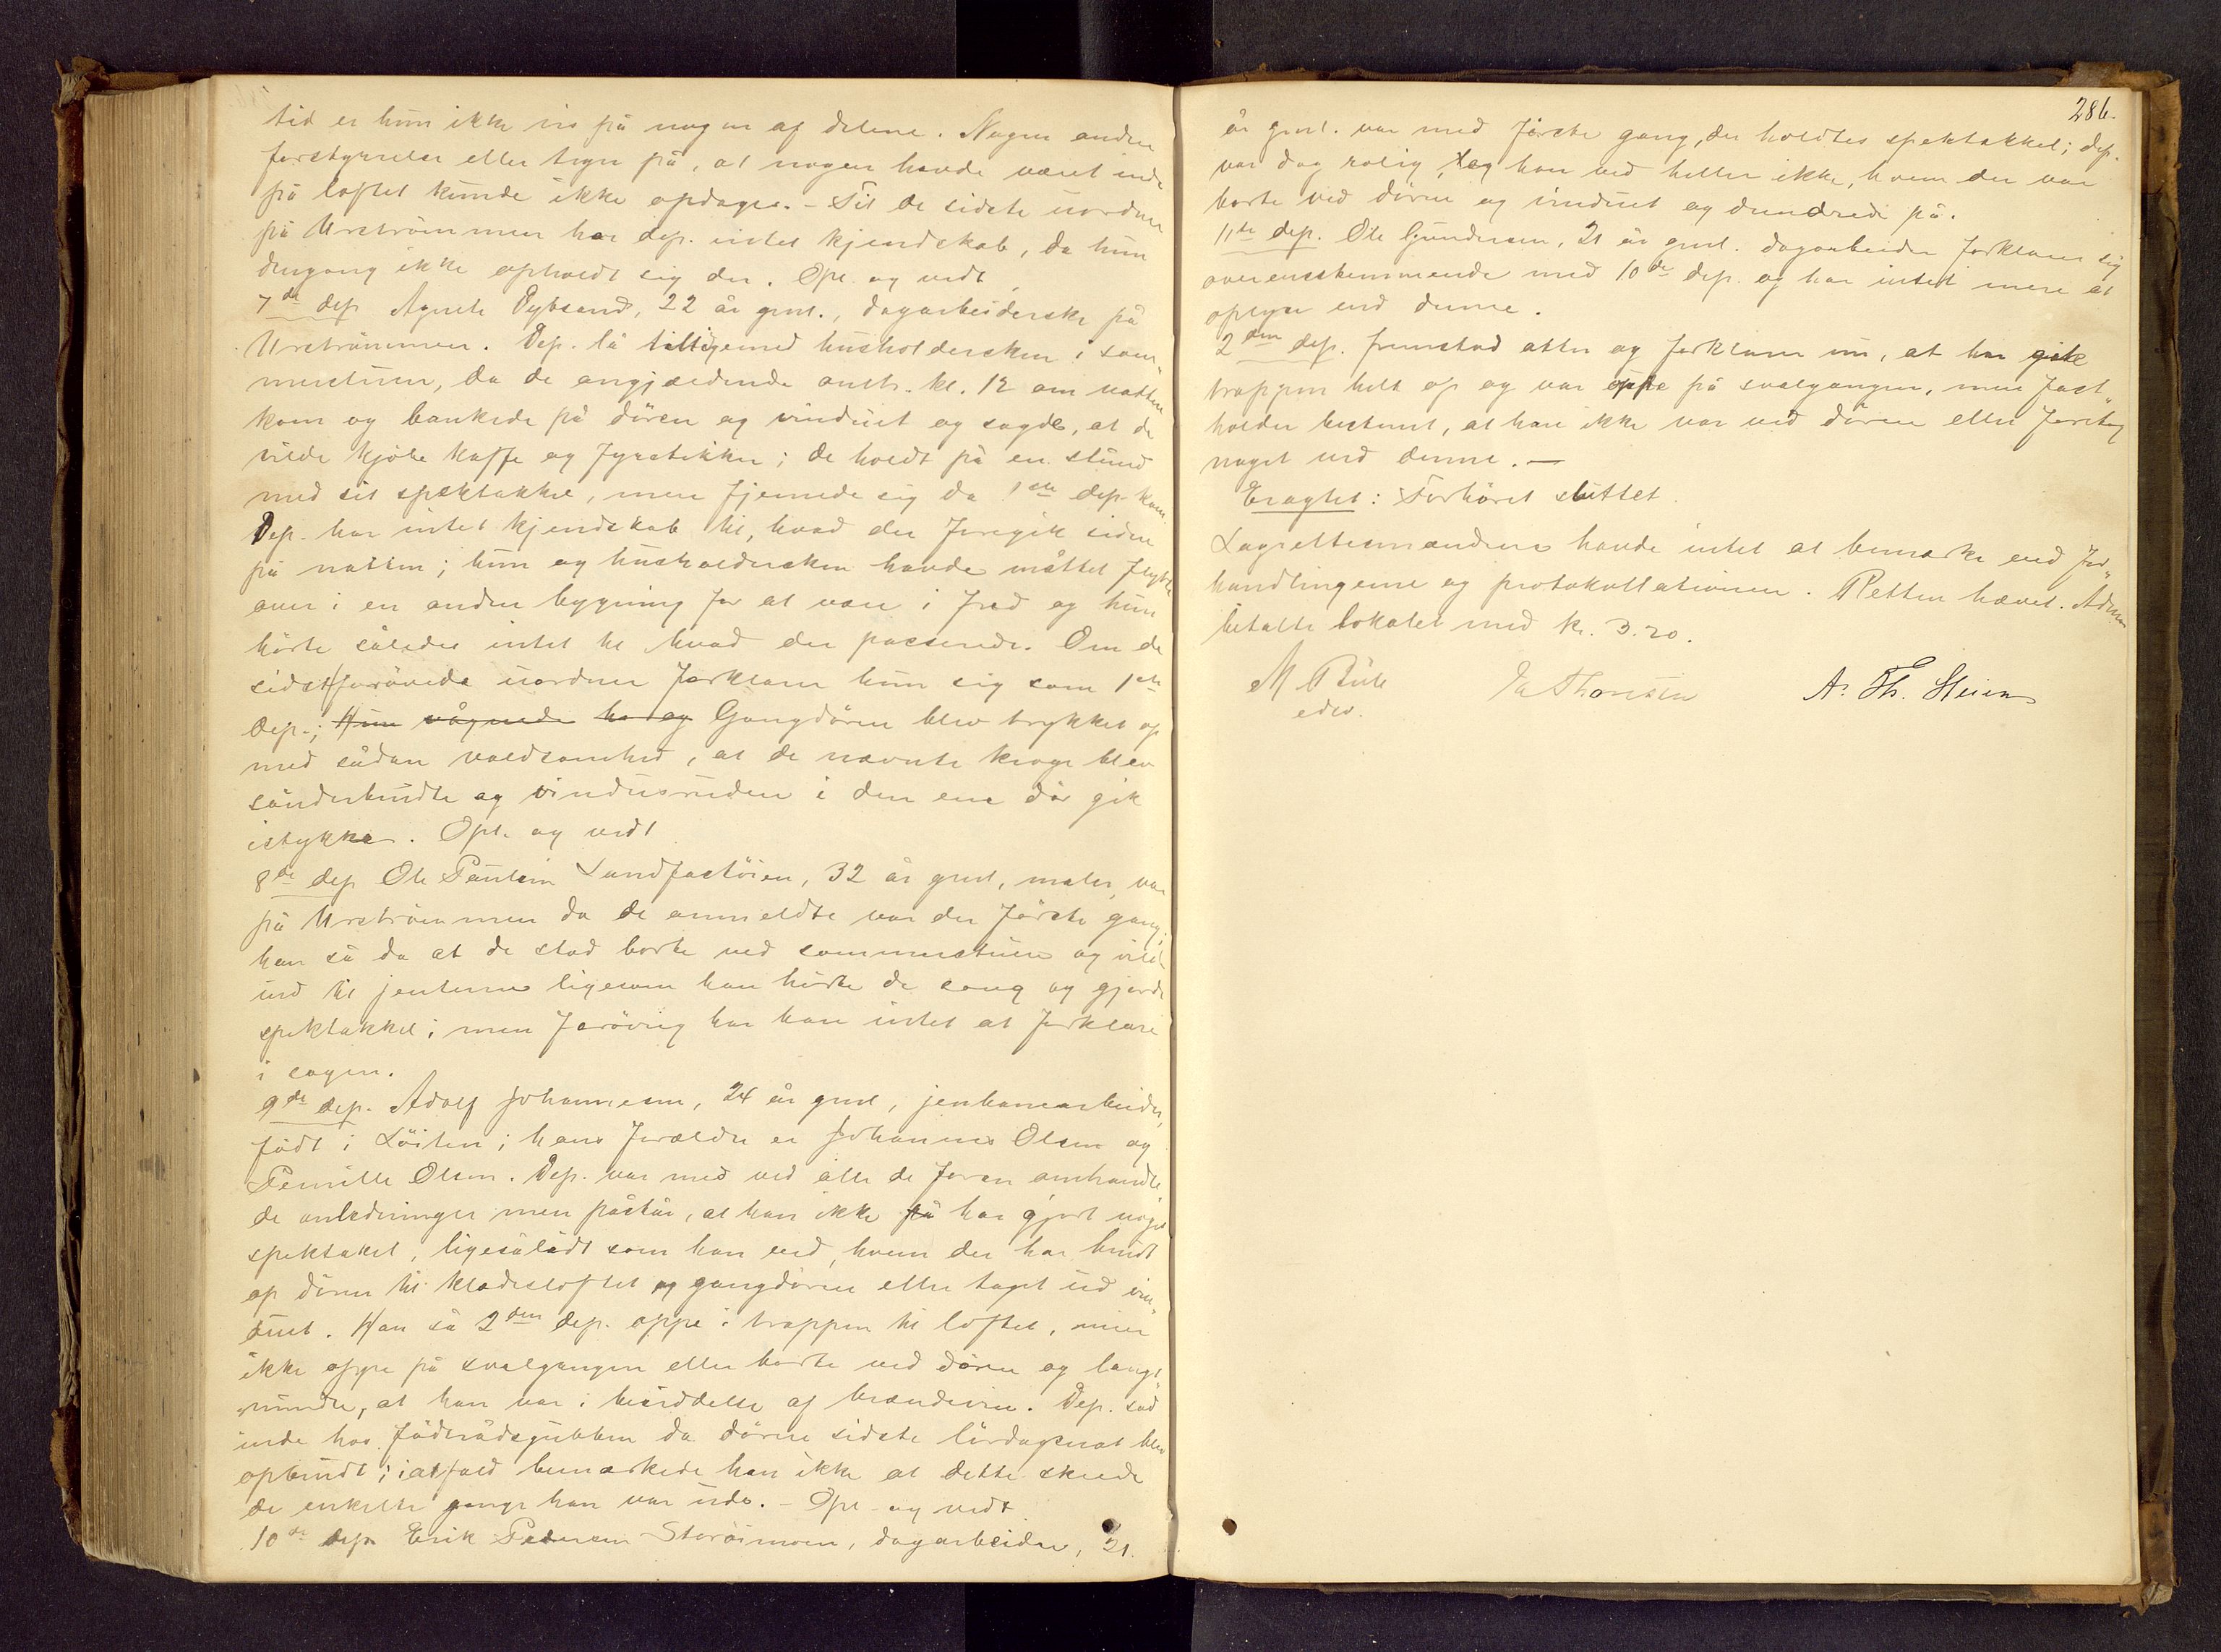 tid er hun ikke vis på nogen af delene. Nogen anden
forstyrrelse eller tegn på, at nogen havde været inde
på loftet kunde ikke opdages. – Til de sidste uordner
på Urstrømmen har dep. intet kjendskab, da hun
dengang ikke opholdt sig der. Opl. og vedt.
7de dep Agnete Dybsand, 22 år gml., dagarbeiderske på
Urstrømmen. Dep. lå tilligemed husholdersken i som„
merstuen, da de angjældende anth. kl. 12 om natten
kom og bankede på døren og vinduet og sagde, at de
vilde kjøbe kaffe og fyrstikker; de holdt på en stund
med sit spektakkel, men fjernede sig da 1ste dep. kom.
Dep. har intet kjendskab til, hvad der foregik siden
på natten; hun og husholdersken havde måttet flytte
over i en anden bygning for at være i fred og hun
hørte således intet til hvad der passerede. Om de
sidst forøvede uordner forklarer hun sig som 1ste
dep.; Hun vågnede ho og Gangdøren blev trykket op
med sådan voldsomhed, at de nævnte kroge blev
sønderbrudte og vindusruden i den ene dør gik
istykker. Opl. og vedt
8de dep Ole Paulsen Sandfastøien, 32 år gml, maler, var
på Urstrømmen da de anmeldte var der første gang;
han så da at de stod borte ved sommerstuen og vilde
ind til jenterne ligesom han hørte de sang og gjorde
spektakkel; men forøvrig har han intet at forklare
i sagen.
9de dep. Adolf Johannesen, 24 år gml, jernbanearbeider,
født i Løiten; hans forældre er Johannes Olsen og
Pernille Olsen. Dep. var med ved alle de foran omhandle„
de anledninger men påstår, at han ikke på har gjort noget
spektakel, ligesålidt som han ved, hvem der har brudt
op døren til klædesloftet og gangdøren eller taget ud vin„
duet. Han så 2den dep. oppe i trappen til loftet, men
ikke oppe på svalgangen eller borte ved døren og langt„
mindre, at han var i besiddelse af brændevin. Dep. sad
inde hos føderådsgubben da døren sidste lørdagsnat blev
opbrudt; ialfald bemærkede han ikke at dette skede
de enkelte gange han var ude. – Opl. og vedt.
10de dep Erik Pedersen Storøimoen, dagarbeider, 21
286.
år gml. var med første gang, der holdtes spektakkel; dep.
var dog rolig, og han ved heller ikke, hvem der var
borte ved døren og vinduet og dundrede på.
11te dep. Ole Gundersen, 21 år gml. dagarbeider forklarer sig
overensstemmende med 10de dep. og har intet mere at
oplyse end denne.
2den dep. fremstod atter og forklarer nu, at han gik
trappen helt op og var oppe på svalgangen, men fast„
holder bestemt, at han ikke var ved døren eller foretog
noget ved denne. –
Eragtet: Forhøret sluttet.
Lagrettesmændene havde intet at bemærke ved for„
handlingerne og protokollationen. Retten hævet. Adm.
betalte lokalet med kr. 3.20.
M Bull Thoresen A. Th. Stein
edsv.